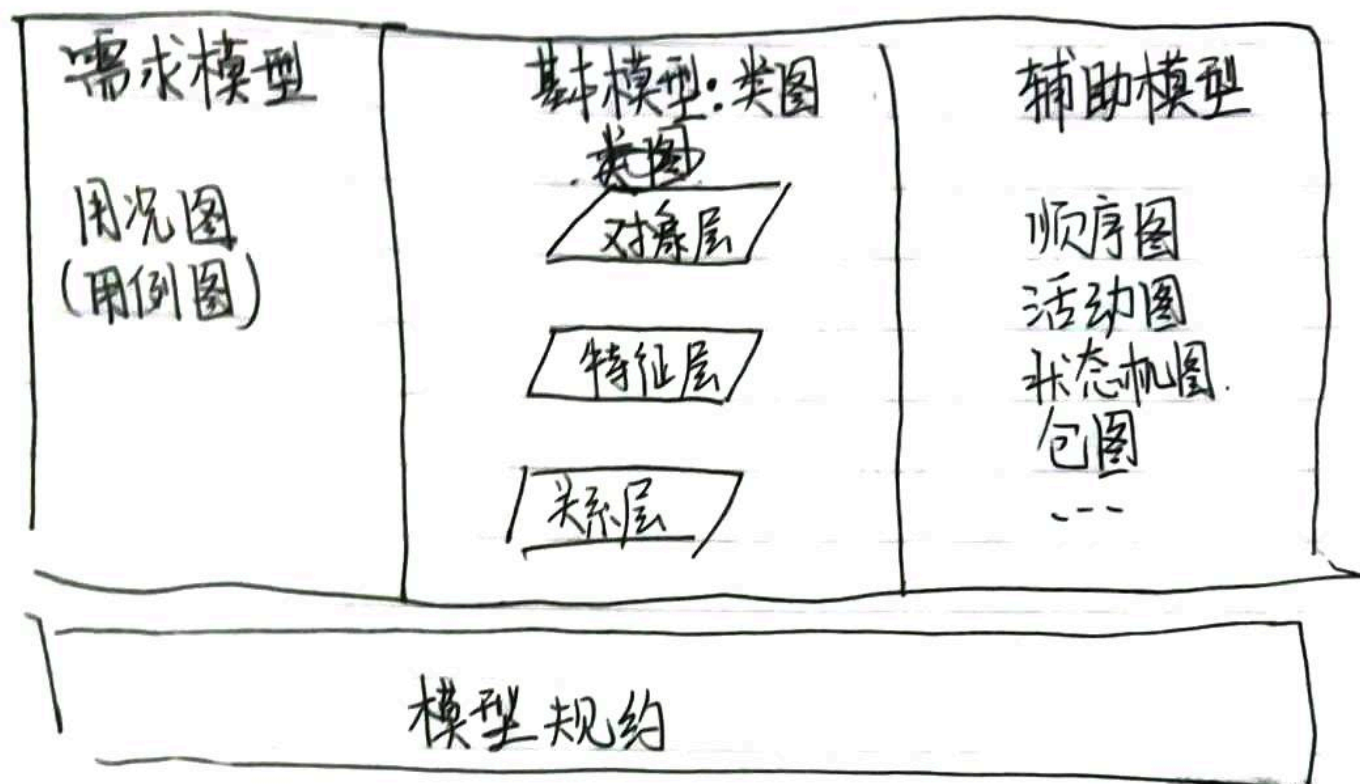 需求模型
用况图
(用例图)
基本模型:类图
类图
对象层
特征层
关系层
辅助模型
顺序图
活动图
状态机图.
包图
...
模型规约